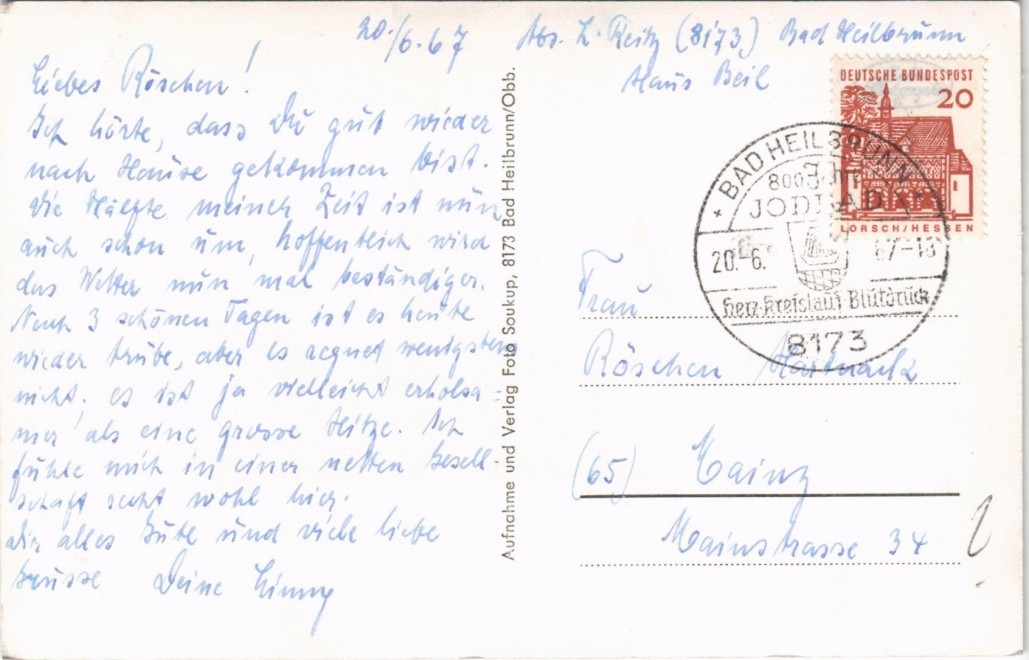 20./6.67
Abs. L. Reitz (8173) Bad Heilbrunn
Haus Beil
Liebes Röschen!
Ich hörte, dass Du gut wieder
nach Hause gekommen bist.
Die Hälfte meiner Zeit ist nun
auch schon um, hoffentlich wird
das Wetter nun mal beständiger.
Nach 3 schönen Tagen ist es heute
wieder trübe, aber es regnet wenigstens
nicht, es ist ja vielleicht erholsa=
mer als eine grosse Hitze. Ich
fühle mich in einer netten Gesell-
schaft recht wohl hier.
Dir alles Gute und viele liebe
Grüsse Deine Linny
Aufnahme und Verlag Foto Soukup, 8173 Bad Heilbrunn/Obb.
DEUTSCHE BUNDESPOST
20
LORSCH/HESSEN
BAD HEILBRUNN
800 Jahr
JODBAD
20.-6. 67-18
Herz-Kreislauf Blutdruck
8173
Frau
Röschen Hartnack
(65) Mainz
Mainstrasse 34